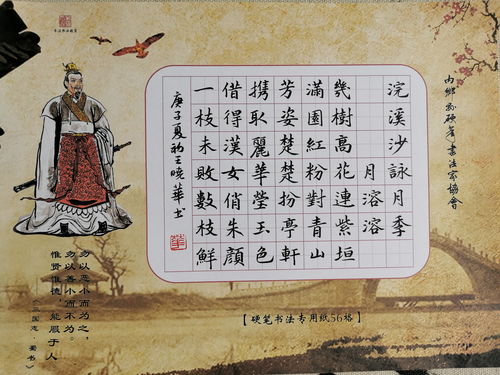 内鄉硬筆書法家協會
浣溪沙詠月季
月溶溶
幾樹高花連紫垣
滿園紅粉對青山
芳姿楚楚扮亭軒
携取麗華瑩玉色
借得漢女俏朱顏
一枝未敗數枝鮮
庚子夏初王曉華书
勿以恶小而为之，
勿以善小而不为。
惟贤惟德，能服于人
《三国志 蜀书》
【硬笔书法专用纸56格】